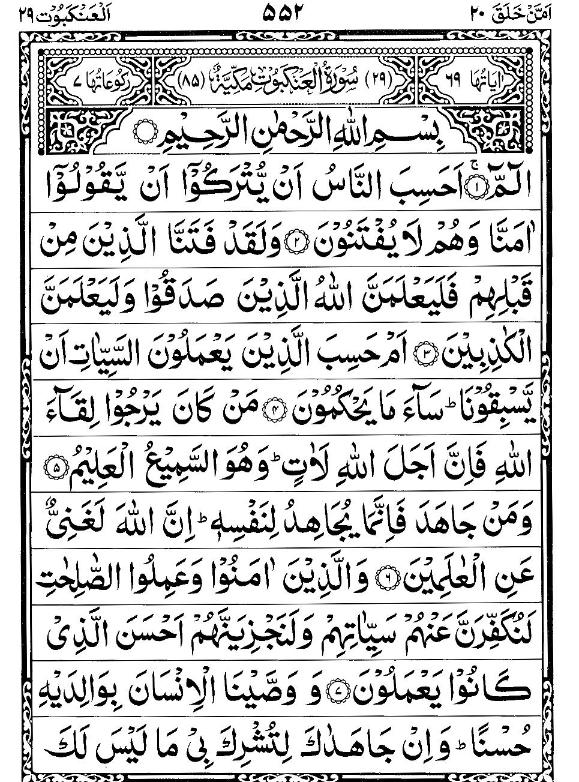 اَمَّنْ خَلَقَ ٢٠ ٥٥٢ اَلْعَنْكَبُوْت ٢٩
اٰيَاتُهَا ٦٩ (٢٩) سُوْرَةُ الْعَنْكَبُوْتِ مَكِّيَّةٌ (٨٥) رُكُوْعَاتُهَا ٧
بِسْمِ اللهِ الرَّحْمٰنِ الرَّحِيْمِ
الٓمّٓ ۚ ١ اَحَسِبَ النَّاسُ اَنْ يُّتْرَكُوْۤا اَنْ يَّقُوْلُوْۤا
اٰمَنَّا وَهُمْ لَا يُفْتَنُوْنَ ٢ وَلَقَدْ فَتَنَّا الَّذِيْنَ مِنْ
قَبْلِهِمْ فَلَيَعْلَمَنَّ اللهُ الَّذِيْنَ صَدَقُوْا وَلَيَعْلَمَنَّ
الْكٰذِبِيْنَ ٣ اَمْ حَسِبَ الَّذِيْنَ يَعْمَلُوْنَ السَّيِّاٰتِ اَنْ
يَّسْبِقُوْنَا ؕ سَآءَ مَا يَحْكُمُوْنَ ٤ مَنْ كَانَ يَرْجُوْا لِقَآءَ
اللهِ فَاِنَّ اَجَلَ اللهِ لَاٰتٍ ؕ وَهُوَ السَّمِيْعُ الْعَلِيْمُ ٥
وَمَنْ جَاهَدَ فَاِنَّمَا يُجَاهِدُ لِنَفْسِهٖ ؕ اِنَّ اللهَ لَغَنِيٌّ
عَنِ الْعٰلَمِيْنَ ٦ وَالَّذِيْنَ اٰمَنُوْا وَعَمِلُوا الصّٰلِحٰتِ
لَنُكَفِّرَنَّ عَنْهُمْ سَيِّاٰتِهِمْ وَلَنَجْزِيَنَّهُمْ اَحْسَنَ الَّذِيْ
كَانُوْا يَعْمَلُوْنَ ٧ وَ وَصَّيْنَا الْاِنْسَانَ بِوَالِدَيْهِ
حُسْنًا ؕ وَاِنْ جَاهَدٰكَ لِتُشْرِكَ بِيْ مَا لَيْسَ لَكَ